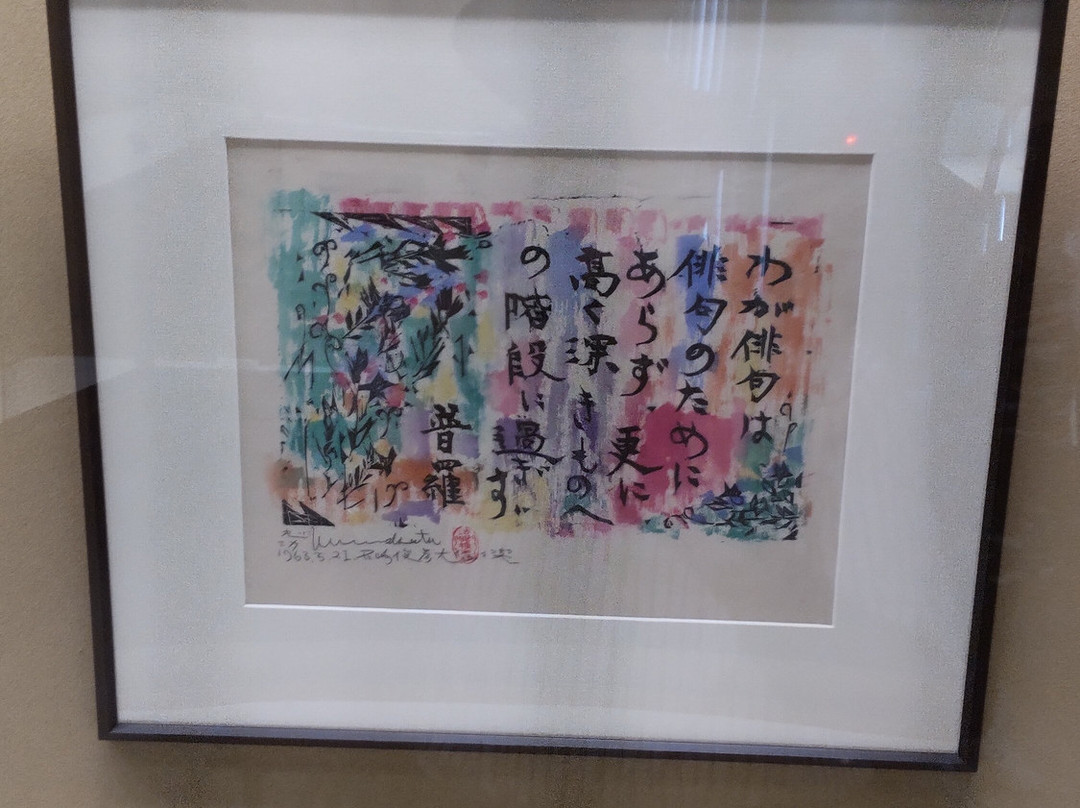 わが俳句は
俳句のために
あらず 更に
高く深きものへ
の階段に過ぎ
ず
普羅
1963.5.21